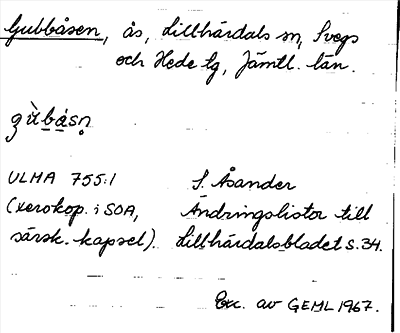 Gubbåsen, ås, Lillhärdals sn, Svegs
och Hede tg, Jämtl. län.
gùbåsn̥
ULMA 755:1 S. Åsander
(xerokop. i SOA, Ändringslistor till
särsk. kapsel). Lillhärdalsbladet s.34.
Exc. av GEML 1967.